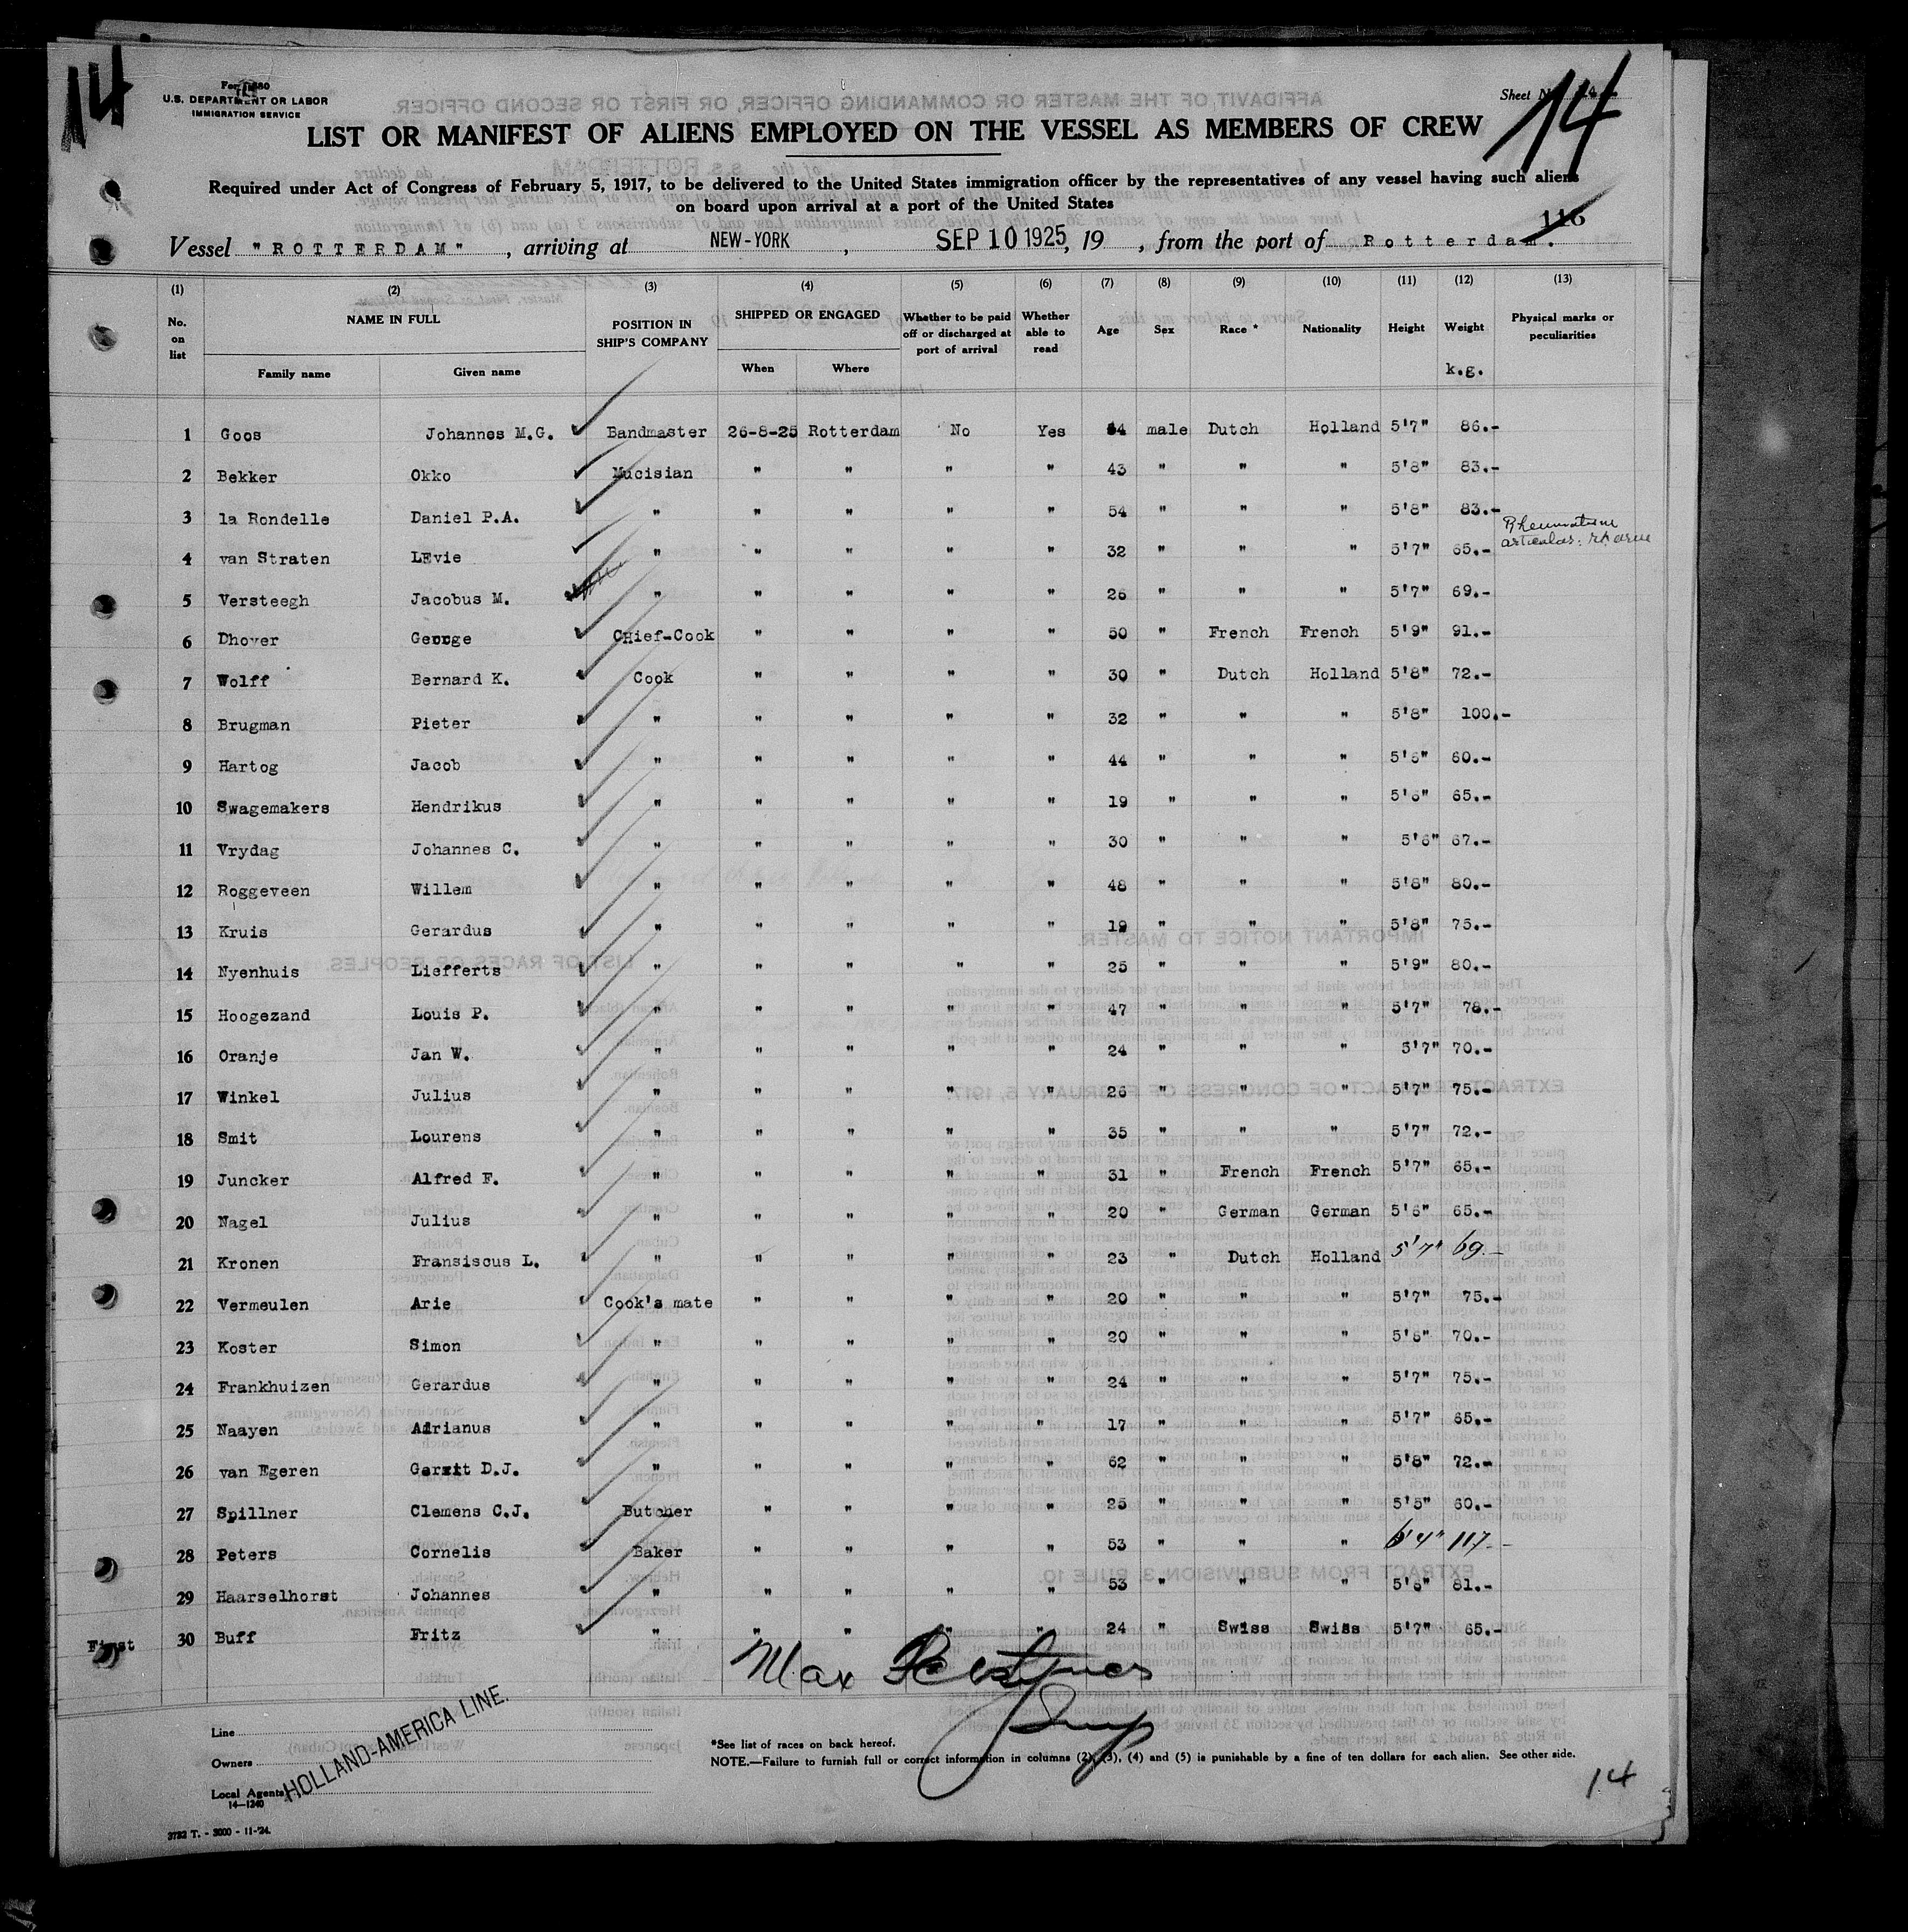 14
U.S. DEPARTMENT OR LABOR
IMMIGRATION SERVICE
Sheet
14
LIST OR MANIFEST OF ALIENS EMPLOYED ON THE VESSEL AS MEMBERS OF CREW
Required under Act of Congress of February 5, 1917, to be delivered to the United States immigration officer by the representatives of any vessel having such aliens
on board upon arrival at a port of the United States
116
Vessel "ROTTERDAM", arriving at NEW-YORK, SEP 10 1925, 19 , from the port of Rotterdam.
(1) (2) (3) (4) (5) (6) (7) (8) (9) (10) (11) (12) (13)
No. on list NAME IN FULL POSITION IN SHIP'S COMPANY SHIPPED OR ENGAGED Whether to be paid off or discharged at port of arrival Whether able to read Age Sex Race * Nationality Height Weight Physical marks or peculiarities
Family name Given name When Where k.g.
1 Goos Johannes M.G. Bandmaster 26-8-25 Rotterdam No Yes 4 male Dutch Holland 5'7" 86.-
2 Bekker Okko Mucisian " " " " 43 " " " 5'8" 83.-
3 la Rondelle Daniel P.A. " " " " " 54 " " " 5'8" 83.-
4 van Straten LEvie " " " " " 32 " " " 5'7" 65.- Rheumatism articular: rt. arm
5 Versteegh Jacobus M. " " " " " 26 " " " 5'7" 69.-
6 Dhoyer George CHief-Cook " " " " 50 " French French 5'9" 91.-
7 Wolff Bernard K. Cook " " " " 30 " Dutch Holland 5'8" 72.-
8 Brugman Pieter " " " " " 32 " " " 5'8" 100.-
9 Hartog Jacob " " " " " 44 " " " 60.-
10 Swagemakers Hendrikus " " " " " 19 " " " 5'6" 65.-
11 Vrydag Johannes C. " " " " " 30 " " " 5'6" 67.-
12 Roggeveen Willem " " " " " 48 " " " 5'8" 80.-
13 Kruis Gerardus " " " " " 19 " " " 5'8" 75.-
14 Nyenhuis Liefferts " " " " " 25 " " " 5'9" 80.-
15 Hoogezand Louis P. " " " " " 47 " " " 5'7" 78.-
16 Oranje Jan W. " " " " " 24 " " " 5'7" 70.-
17 Winkel Julius " " " " " 26 " " " 5'7" 75.-
18 Smit Lourens " " " " " 35 " " " 5'7" 72.-
19 Juncker Alfred F. " " " " " 31 " French French 5'7" 65.-
20 Nagel Julius " " " " " 20 " German German 5'6" 65.-
21 Kronen Fransiscus L. " " " " " 23 " Dutch Holland 5'7" 69.-
22 Vermeulen Arie Cook's mate " " " " 20 " " " 5'7" 75.-
23 Koster Simon " " " " " 20 " " " 5'6" 70.-
24 Frankhuizen Gerardus " " " " " 24 " " " 5'7" 75.-
25 Naayen Adrianus " " " " " 17 " " " 5'7" 65.-
26 van Egeren Gerrit D.J. " " " " " 62 " " " 5'8" 72.-
27 Spillner Clemens C.J. Butcher " " " " 25 " " " 5'5" 60.-
28 Peters Cornelis Baker " " " " 53 " " " 6'4" 117.-
29 Haarselhorst Johannes " " " " " 53 " " " 5'6" 81.-
First 30 Buff Fritz " " " " " 24 " Swiss Swiss 5'7" 65.-
Max
Line
Owners
Local Agents
HOLLAND-AMERICA LINE.
14—1240
*See list of races on back hereof.
NOTE.—Failure to furnish full or correct information in columns (2), (3), (4) and (5) is punishable by a fine of ten dollars for each alien. See other side.
14
3732 T. - 3000 - 11-'24.